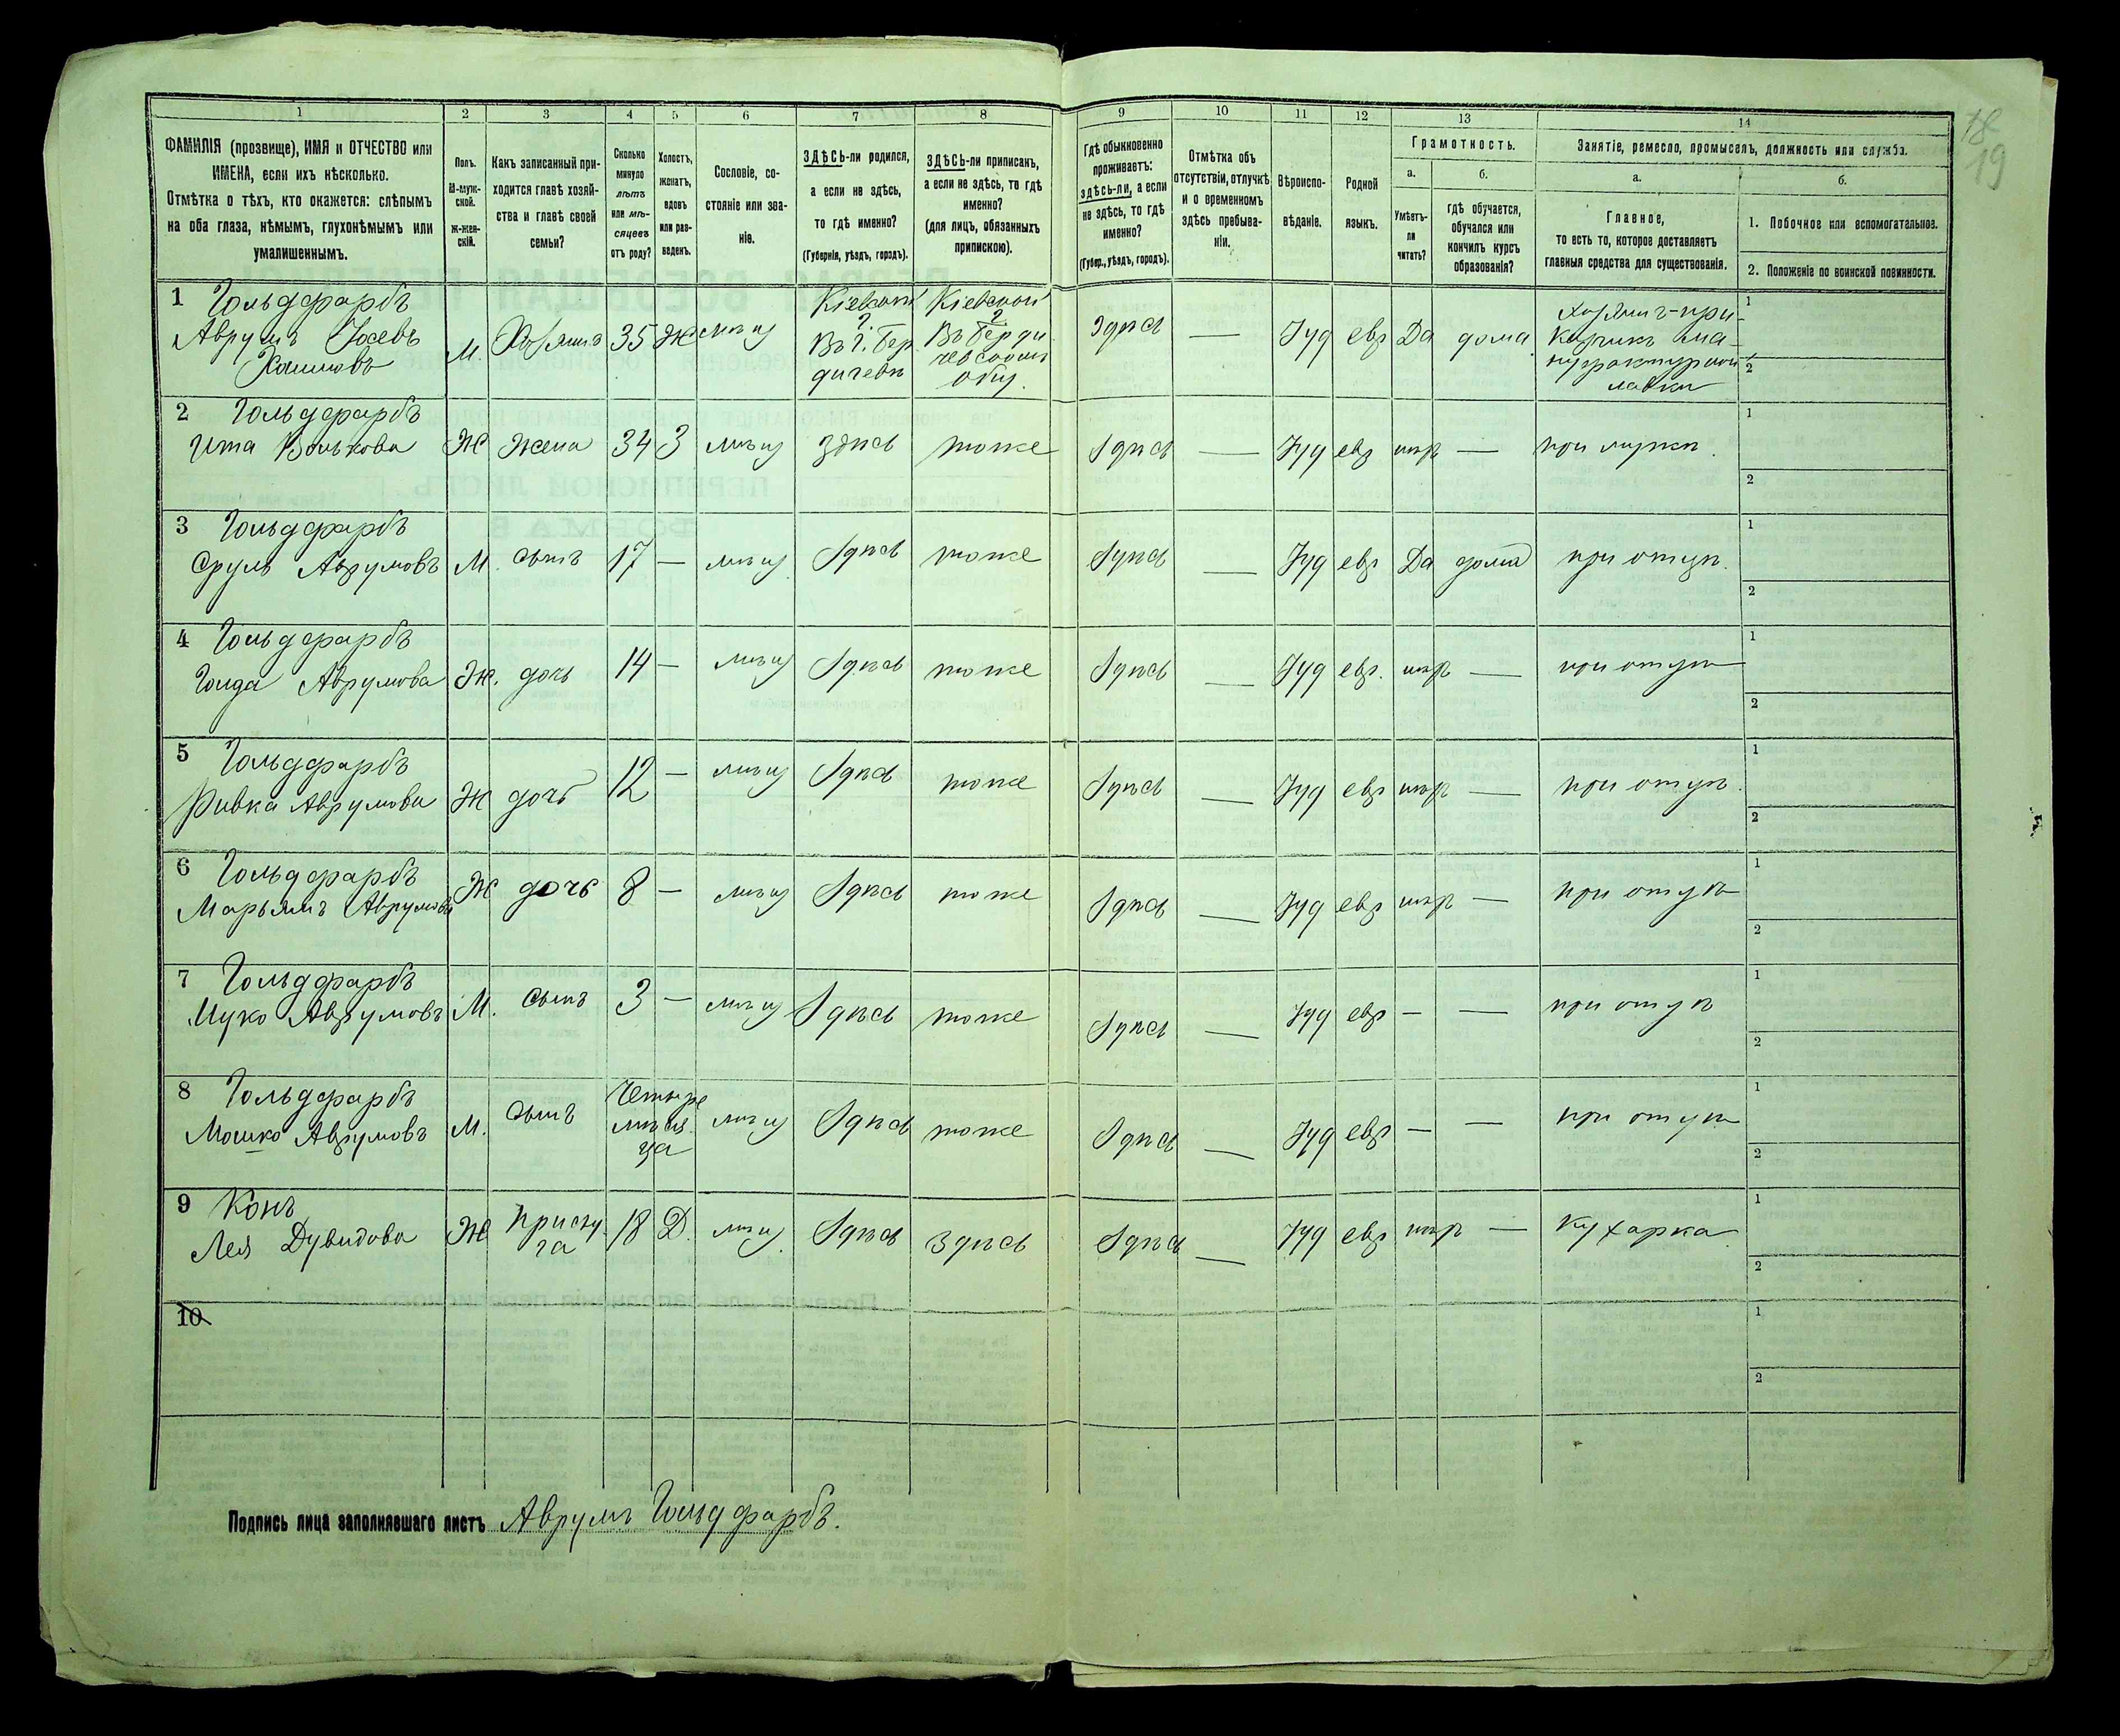 18
19
1 2 3 4 5 6 7 8 9 10 11 12 13 14
ФАМИЛІЯ (прозвище), ИМЯ и ОТЧЕСТВО или
ИМЕНА, если ихъ нѣсколько.
Отмѣтка о тѣхъ, кто окажется: слѣпымъ
на оба глаза, нѣмымъ, глухонѣмымъ или
умалишеннымъ.
Полъ.
М-муж-
ской.
Ж-жен-
скій.
Какъ записанный при-
ходится главѣ хозяй-
ства и главѣ своей
семьи?
Сколько
минуло
лѣтъ
или мѣ-
сяцевъ
отъ роду?
Холостъ,
женатъ,
вдовъ
или раз-
веденъ.
Сословіе, со-
стояніе или зва-
ніе.
ЗДѢСЬ-ли родился,
а если не здѣсь,
то гдѣ именно?
(Губернія, уѣздъ, городъ).
ЗДѢСЬ-ли приписанъ,
а если не здѣсь, то гдѣ
именно?
(для лицъ, обязанныхъ
припискою).
Гдѣ обыкновенно
проживаетъ:
здѣсь-ли, а если
не здѣсь, то гдѣ
именно?
(Губер., уѣздъ, городъ).
Отмѣтка объ
отсутствіи, отлучкѣ
и о временномъ
здѣсь пребыва-
ніи.
Вѣроиспо-
вѣданіе.
Родной
языкъ.
Грамотность.
а.
Умѣетъ-
ли
читать?
б.
гдѣ обучается,
обучался или
кончилъ курсъ
образованія?
Занятіе, ремесло, промыселъ, должность или служба.
а.
Главное,
то есть то, которое доставляетъ
главныя средства для существованія.
б.
1. Побочное или вспомогательное.
2. Положеніе по воинской повинности.
1 Гольдфарбъ
Аврумъ Іосевъ
Хаимовъ
М. Хозяинъ 35 Ж мѣщ
Кіевской
г.
Въ г. Бер
дичевѣ
Кіевской
г.
Въ Берди
чевскомъ
общ.
Здѣсь — Іуд евр Да дома
Хозяинъ-при-
кащикъ ма-
нуфактурной
лавки
1
2
2 Гольдфарбъ
Ита Волькова Ж жена 34 З мѣщ здѣсь тоже Здѣсь — Іуд евр нѣт — при мужѣ.
1
2
3 Гольдфарбъ
Сруль Аврумовъ М. сынъ 17 — мѣщ Здѣсь тоже Здѣсь — Іуд евр Да дома при отцѣ.
1
2
4 Гольдфарбъ
Голда Аврумова Ж. дочь 14 — мѣщ Здѣсь тоже Здѣсь — Іуд евр. нѣт — при отцѣ
1
2
5 Гольдфарбъ
Ривка Аврумова Ж дочь 12 — мѣщ Здѣсь тоже Здѣсь — Іуд евр нѣт — при отцѣ.
1
2
6 Гольдфарбъ
Марьямъ Аврумова Ж дочь 8 — мѣщ Здѣсь тоже Здѣсь — Іуд евр нѣт — при отцѣ
1
2
7 Гольдфарбъ
Ицко Аврумовъ М. сынъ 3 — мѣщ Здѣсь тоже Здѣсь — Іуд евр — — при отцѣ
1
2
8 Гольдфарбъ
Мошко Аврумовъ М. сынъ
Четыре
мѣся
ца
мѣщ Здѣсь тоже Здѣсь — Іуд евр — — при отцѣ
1
2
9 Конъ
Лея Дувидова Ж
прислу
га
18 Д. мѣщ. Здѣсь здѣсь Здѣсь — Іуд евр нѣт — кухарка
1
2
10
1
2
Подпись лица заполнявшаго листъ Аврумъ Гольдфарбъ.